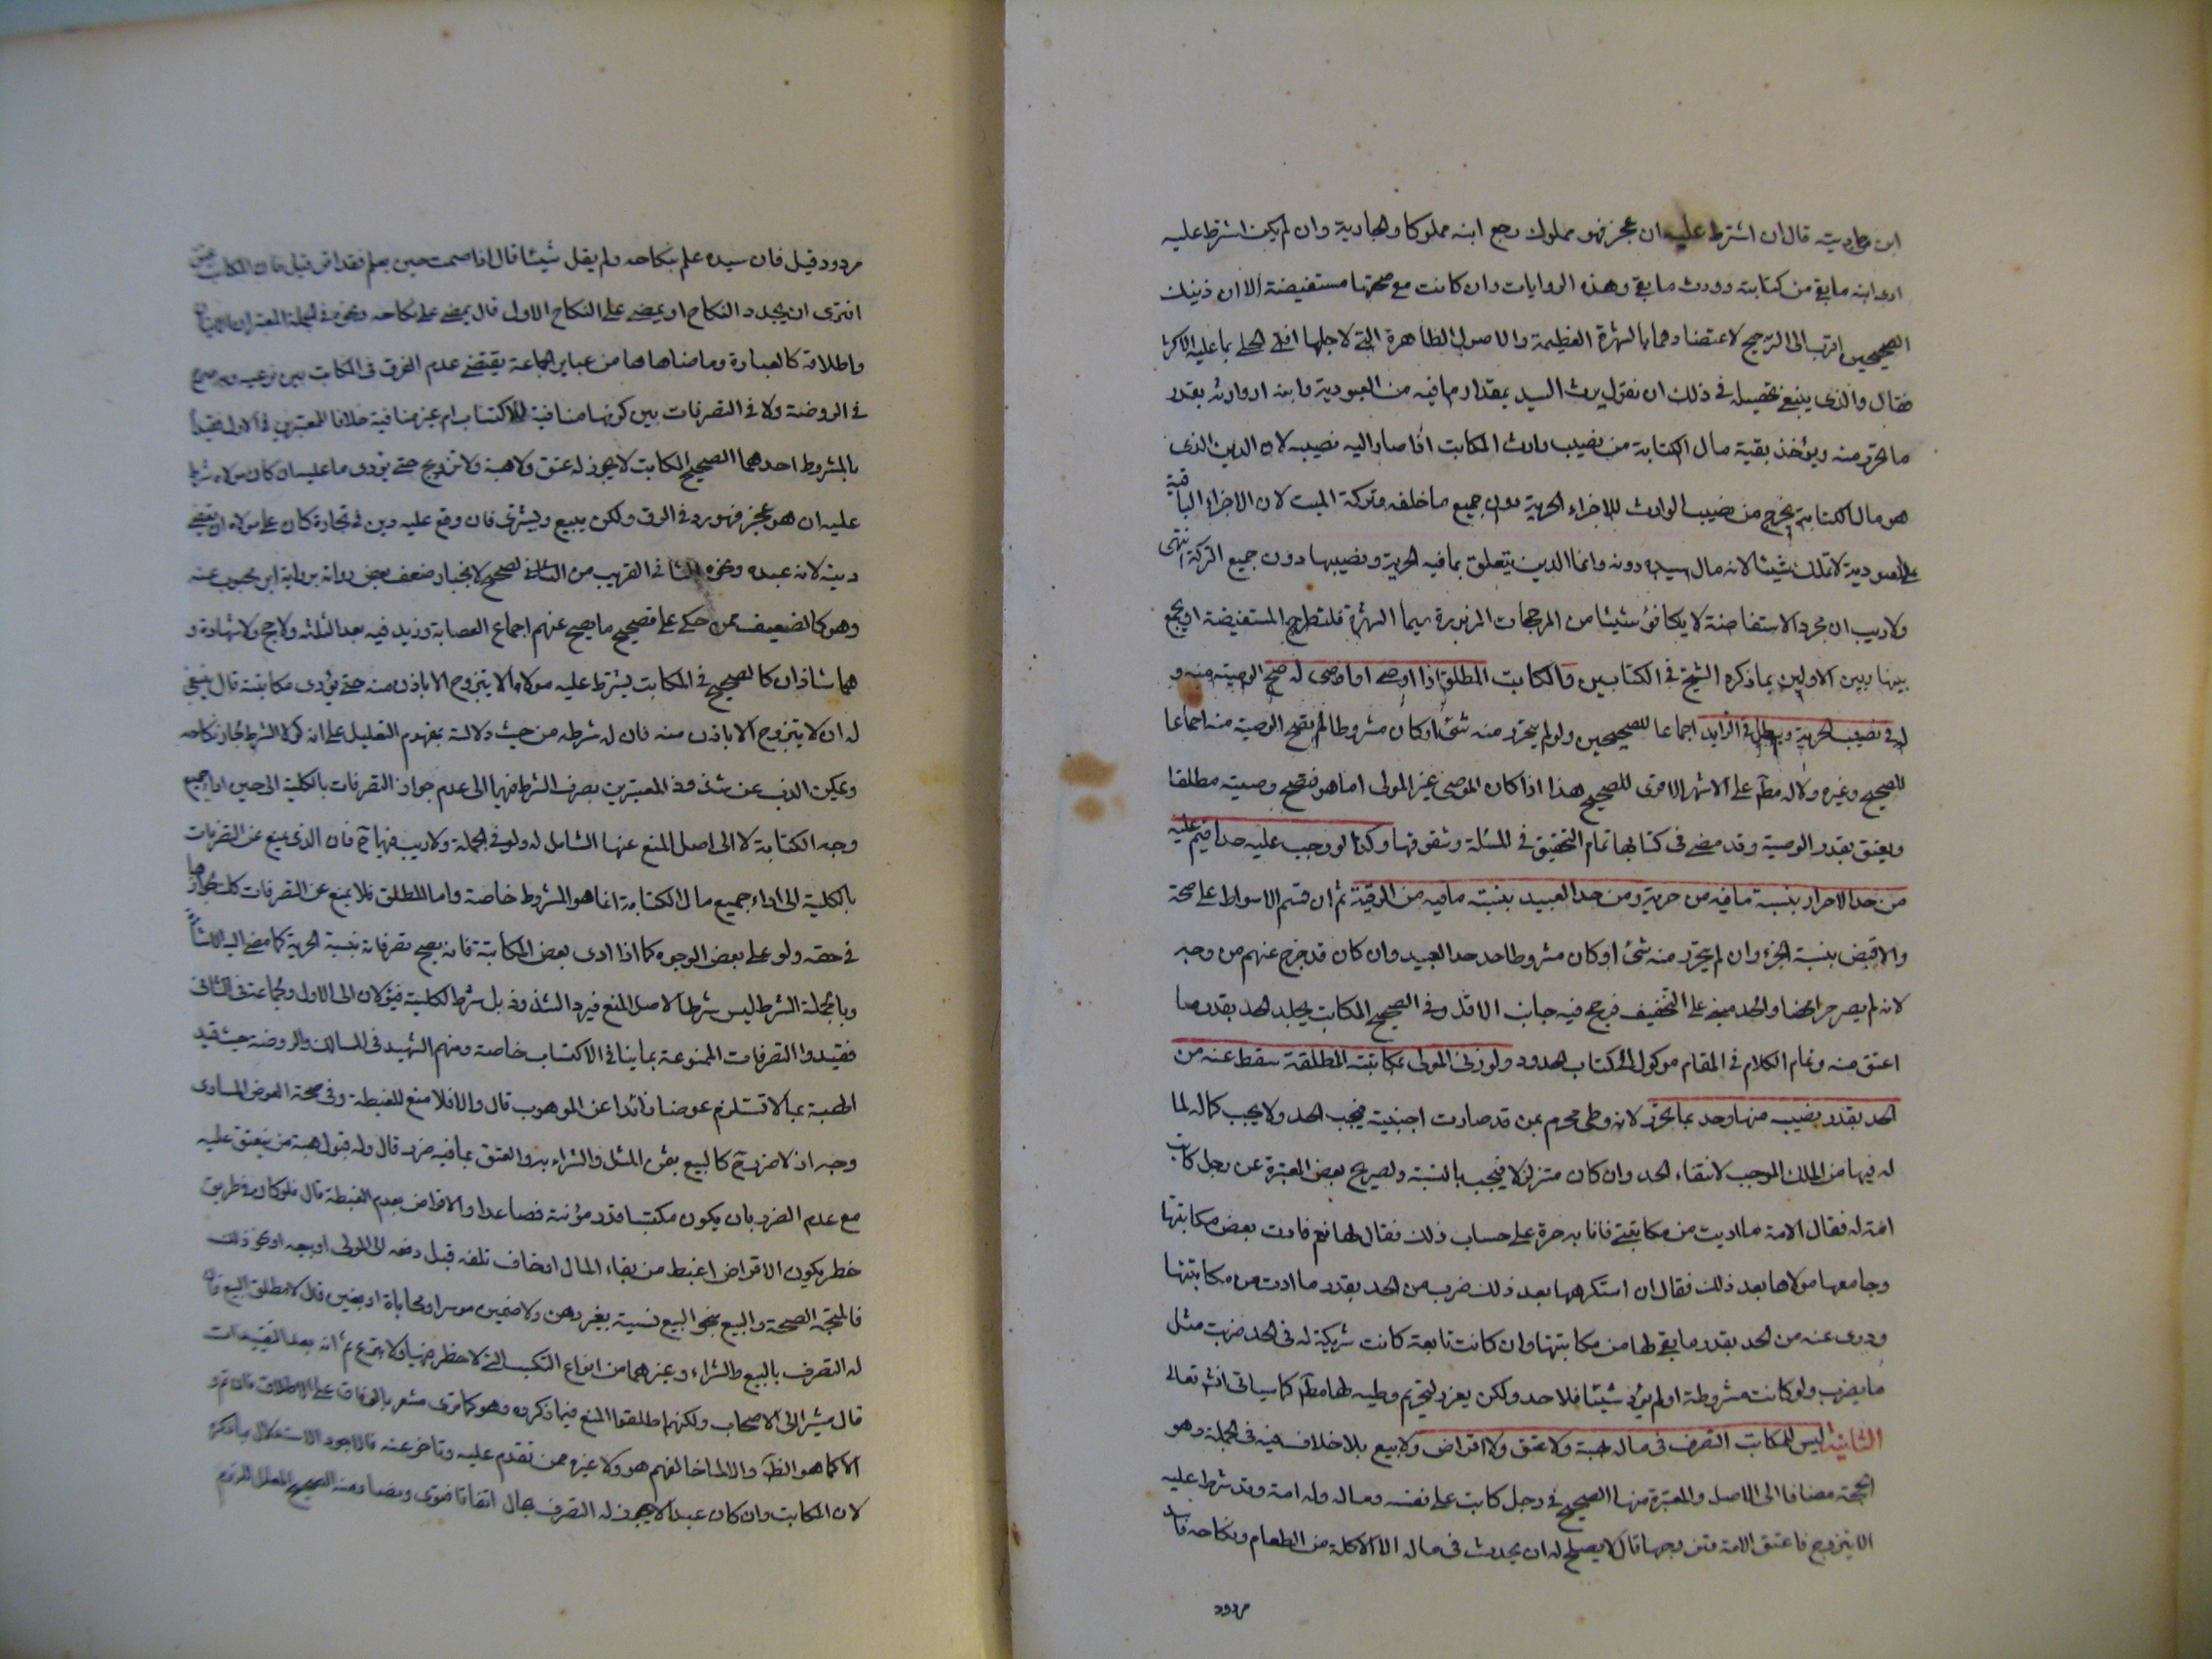 ابن معاوية قال ان اشترط عليه ان عجز فهو مملوك رجع ابنه مملوكا والجارية وان لم يكن اشترط عليه
ادى ابنه ما بقى من كتابته وورث ما بقى وهذه الروايات وان كانت مع صحتها مستفيضة الا ان ذينك
الصحيحين اقرب الى الترجيح لاعتضادهما بالشهرة العظيمة والاصول الظاهرة التى لاجلها افتى الحلى بما عليه الاكثر
فقال والذى ينبغى تحصيله فى ذلك ان نقول يرث السيد بمقدار ما فيه من العبودية وابنه او وارثه بقدر
ما تحرر منه ويؤخذ بقية مال الكتابة من نصيب وارث المكاتب اذا صار اليه نصيبه لان الدين الذى
هو مال الكتابة يخرج من نصيب الوارث للاجزاء الحرية دون جميع ما خلفه وتركه الميت لان الاجزاء الباقية
على العبودية لا تملك شيئا لانه مال سيده دونه وانما الدين يتعلق بما فيه الحرية ونصيبها دون جميع التركة انتهى
ولا ريب ان مجرد الاستفاضة لا يكافؤ شيئا من المرجحات المزبورة سيما الشهرة فلتطرح المستفيضة او يجمع
بينها وبين الاولين بما ذكره الشيخ فى الكتابين والمكاتب المطلق اذا اوصى او اوصى له صح الوصية منه و
له فى نصيب الحرية ويبطل فى الزايد اجماعا للصحيحين ولو لم يتحرر منه شئ او كان مشروطا لم تصح الوصية منه اجماعا
للصحيح وغيره ولا له مطم على الاشهر الاقوى للصحيح هذا اذا كان الموصى غير المولى اما هو فتصح وصيته مطلقا
ويعتق بقدر الوصية وقد مضى فى كتابها تمام التحقيق فى المسئلة وشقوقها وكذا لو وجب عليه حد اقيم عليه
من حد الاحرار بنسبة ما فيه من حرية ومن حد العبيد بنسبة ما فيه من الرقية ثم ان قسم الاسواط على صحة
والا قبض بنسبة الجزء وان لم يتحرر منه شئ او كان مشروطا حد حد العبيد وان كان قد خرج عنهم من وجه
لانه لم يصر حرا محضا والحد مبنى على التخفيف فرجح فيه جانب الاقل وفى الصحيح المكاتب يجلد الحد بقدر ما
اعتق منه وتمام الكلام فى المقام موكول الى كتاب الحدود ولو زنى المولى بمكاتبته المطلقة سقط عنه من
الحد بقدر نصيبه منها وحد بما تحرر لانه وطى محرم بمن قد صارت اجنبية فيجب الحد ولا يجب كماله لما
له فيها من الملك الموجب لانتفاء الحد وان كان متزلزلا فيجب بالنسبة ولصريح بعض المعتبرة عن رجل كاتب
امة له فقال الامة ما اديت من مكاتبتى فانا به حرة على حساب ذلك فقال لها نعم فادت بعض مكاتبتها
وجامعها مولاها بعد ذلك فقال ان استكرهها بعد ذلك ضرب من الحد بقدر ما ادت من مكاتبتها
ودرى عنه من الحد بقدر ما بقى لها من مكاتبتها وان كانت تابعته كانت شريكة له فى الحد ضربت مثل
ما يضرب ولو كانت مشروطة او لم يؤد شيئا فلا حد ولكن يعزر لتحريم وطيه لها مطم كما سياتى انش تعالى
الثانية ليس للمكاتب التصرف فى ماله هبة ولا عتق ولا اقراض ولا بيع بلا خلاف فيه فى الجملة وهو
الحجة مضافا الى الاصل والمعتبرة منها الصحيح فى رجل كاتب على نفسه وماله وله امة وقد شرط عليه
الا يتزوج فاعتق الامة وتزوجها قال لا يصلح له ان يحدث فى ماله الا الاكلة من الطعام ونكاحه فاسد
مردود
مردود قيل فان سيده علم بنكاحه ولم يقل شيئا قال اذا صمت حين يعلم فقد اقر قيل فان المكاتب عتق
افترى ان يجدد النكاح او يمضى على النكاح الاول قال يمضى على نكاحه ونحوه فى الجملة المعتبران الاتيان
واطلاقه كالعبارة وما ضاهاها من عباير الجماعة يقتضى عدم الفرق فى المكاتب بين نوعيه وبه صرح
فى الروضة ولا فى التصرفات بين كونها منافية للاكتساب ام غير منافية خلافا للمعتبرين فى الاول فقيدا
بالمشروط احدهما الصحيح المكاتب لا يجوز له عتق ولا هبة ولا تزويج حتى يؤدى ما عليه ان كان مولاه شرط
عليه ان هو عجز فهو رد فى الرق ولكن يبيع ويشترى فان وقع عليه دين فى تجارة كان على مولاه ان يقضى
دينه لانه عبده ونحوه الثانى القريب من الصحيح لانجبار ضعف بعض رواته برواية ابن محبوب عنه
وهو كالضعيف ممن حكى على تصحيح ما يصح عنهم اجماع العصابة وزيد فيه بعد الثلثه ولا حج ولا شهادة و
هما شاذان كالصحيح فى المكاتب يشترط عليه مولاه الا يتزوج الا باذن منه حتى يؤدى مكاتبته قال ينبغى
له ان لا يتزوج الا باذن منه فان له شرطه من حيث دلالته بمفهوم التعليل على انه لولا الشرط لجاز نكاحه
ويمكن الذب عن شذوذ المعتبرين بصرف الشرط فيها الى عدم جواز التصرفات بالكلية الى حين اداء جميع
وجه الكتابة لا الى اصل المنع عنها الشامل له ولو فى الجملة ولا ريب فيها ح فان الذى يمنع عن التصرفات
بالكلية الى اداء جميع مال الكتابة انما هو المشروط خاصة واما المطلق فلا يمنع عن التصرفات كلك لجوازها
فى حقه ولو على بعض الوجوه كما اذا ادى بعض المكاتبة فانه يصح تصرفاته بنسبة الحرية كما مضى اليه الاشارة
وبالجملة الشرط ليس شرطا لاصل المنع فيرد الشذوذ بل شرط الكلية فيؤلان الى الاول ولجماعة فى الثانى
فقيدوا التصرفات الممنوعة بما ينافى الاكتساب خاصة ومنهم الشهيد فى المسالك والروضة حيث قيد
الهبة بما لا تستلزم عوضا زائدا عن الموهوب قال والا فلا منع للغبطة وفى صحة العوض المساوى
وجه اذ لا ضرر ح كالبيع بثمن المثل والشراء به والعتق بما فيه ضرر قال وله قبول هبة من ينعتق عليه
مع عدم الضرر بان يكون مكتسبا قدر مؤنته فصاعدا والاقراض بعدم الغبطة قال فلو كان فى طريق
خطر يكون الاقراض اغبط من بقاء المال او خاف تلفه قبل دفعه الى المولى او بيعه او نحو ذلك
فالمتجه الصحة والبيع بنحو البيع نسية بغير رهن ولا ضمين موسر او محاباة او بغبن قال لا مطلق البيع فان
له التصرف بالبيع والشراء وغيرهما من انواع التكسب التى لا خطر فيها ولا تبرع ثم انه بعد التقييدات
قال مشيرا الى الاصحاب ولكنهم اطلقوا المنع فيما ذكروه وهو كما ترى مشعر بالوفاق على الاطلاق
الا كما هو الظ والا لما خالفهم هو ولا غيره ممن تقدم عليه وتاخر عنه فالاجود الاستدلال بما ذكره
لان المكاتب وان كان عبدا لا يجوز له التصرف بحال اتفاقا فتوى ونصا ومنه الصحيح المعلل للزوم